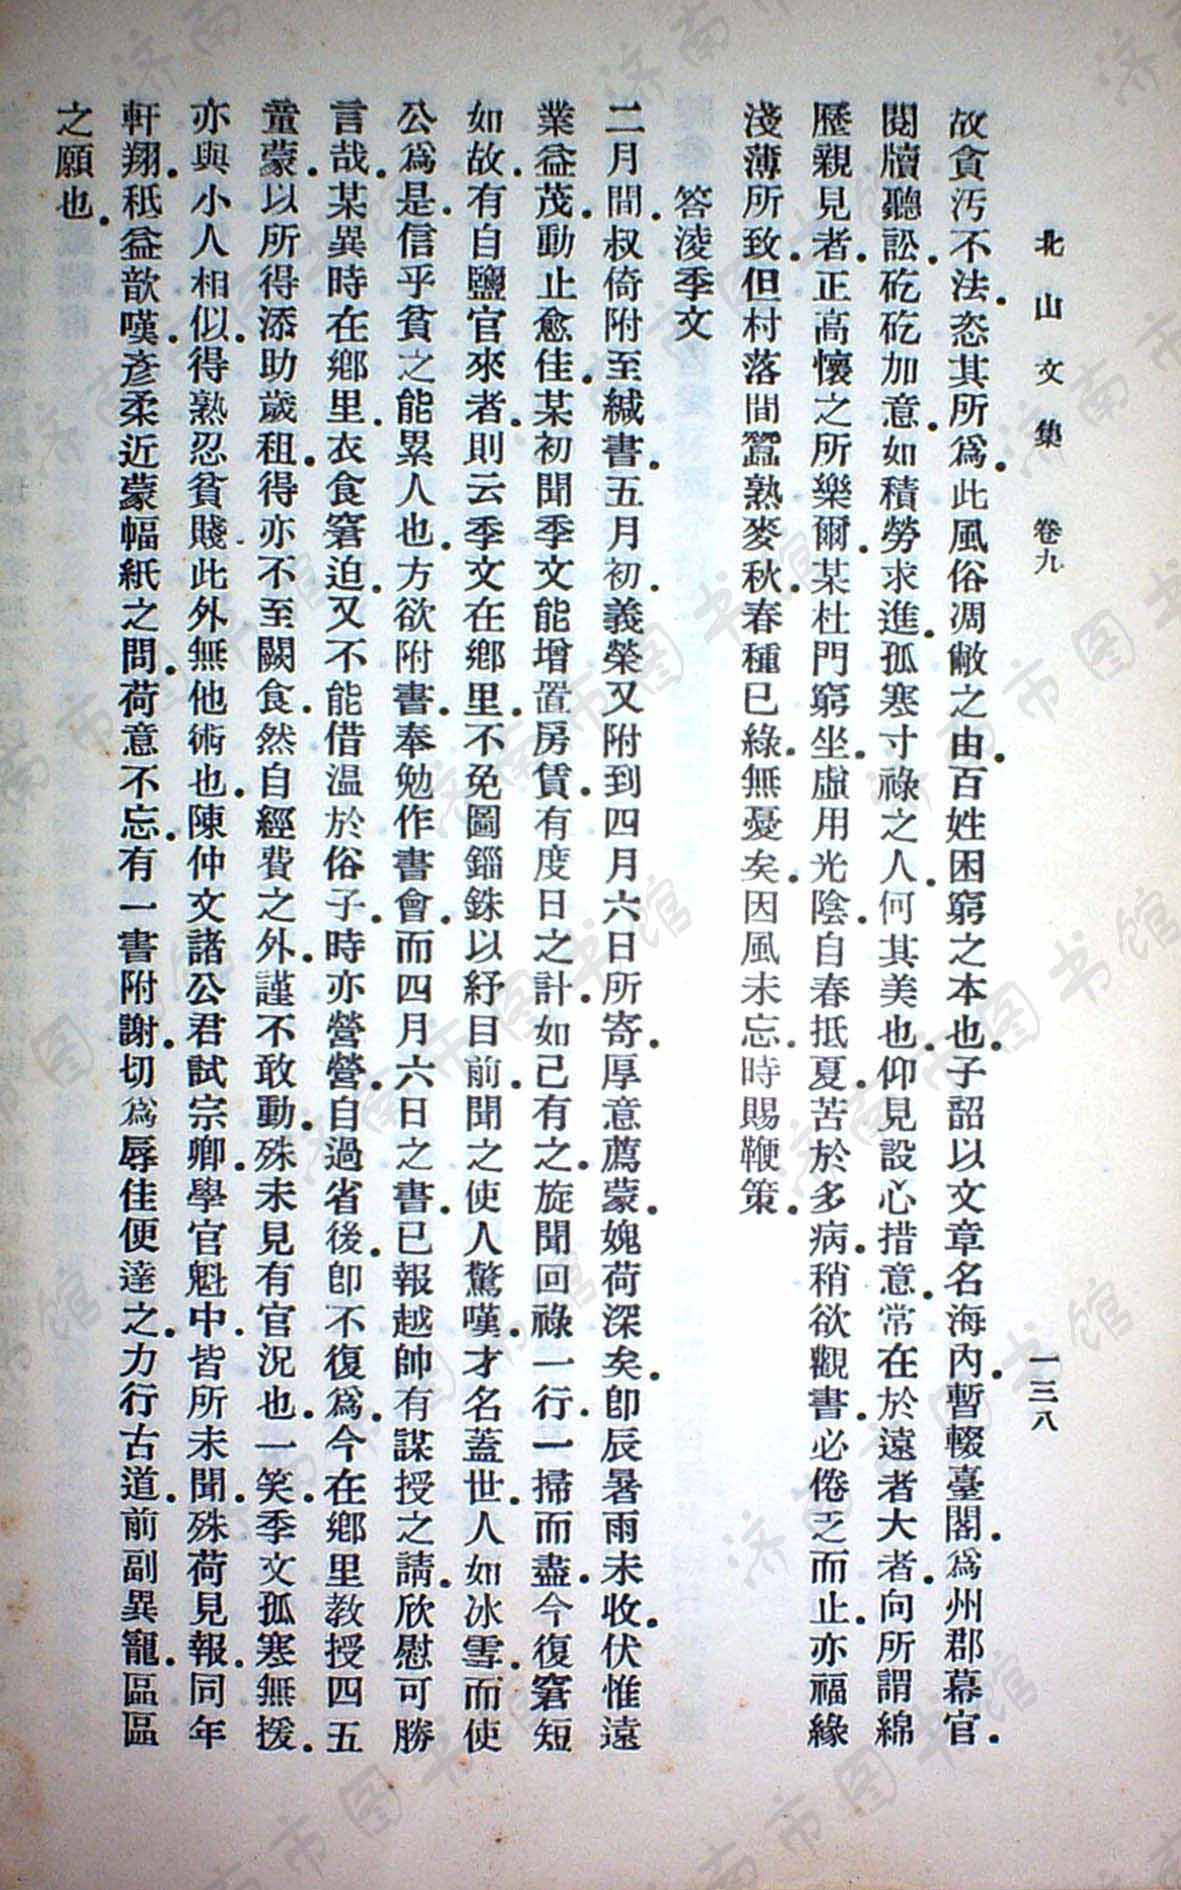 北山文集 卷九 一三八
故貪汚不法。恣其所爲。此風俗凋敝之由。百姓困窮之本也。子韶以文章名海內。暫輟臺閣。爲州郡幕官。
閱牘聽訟。矻矻加意。如積勞求進。孤寒寸祿之人。何其美也。仰見設心措意。常在於遠者大者。向所謂綿
歷親見者。正高懷之所樂爾。某杜門窮坐。虛用光陰。自春抵夏。苦於多病。稍欲觀書。必倦乏而止。亦福緣
淺薄所致。但村落間蠶熟麥秋。春種已綠。無憂矣。因風未忘。時賜鞭策。
答淩季文
二月間。叔倚附至緘書。五月初。義榮又附到四月六日所寄。厚意薦蒙。媿荷深矣。卽辰暑雨未收。伏惟遠
業益茂。動止愈佳。某初聞季文能增置房賃。有度日之計。如己有之。旋聞回祿一行。一掃而盡。今復窘短
如故。有自鹽官來者。則云季文在鄉里。不免圖錙銖以紓目前。聞之使人驚嘆。才名蓋世。人如冰雪。而使
公爲是。信乎貧之能累人也。方欲附書奉勉作書會。而四月六日之書。已報越帥有謀授之請。欣慰可勝
言哉。某異時在鄉里。衣食窘迫。又不能借溫於俗子。時亦營營。自過省後。卽不復爲。今在鄉里教授四五
童蒙。以所得添助歲租。得亦不至闕食。然自經費之外。謹不敢動。殊未見有官況也。一笑。季文孤寒無援。
亦與小人相似。得熟忍貧賤。此外無他術也。陳仲文諸公君試宗卿。學官魁中。皆所未聞。殊荷見報。同年
軒翔。秖益歆嘆。彥柔近蒙幅紙之問。荷意不忘。有一書附謝。切爲辱佳便達之。力行古道。前副異寵。區區
之願也。
济南市图书馆